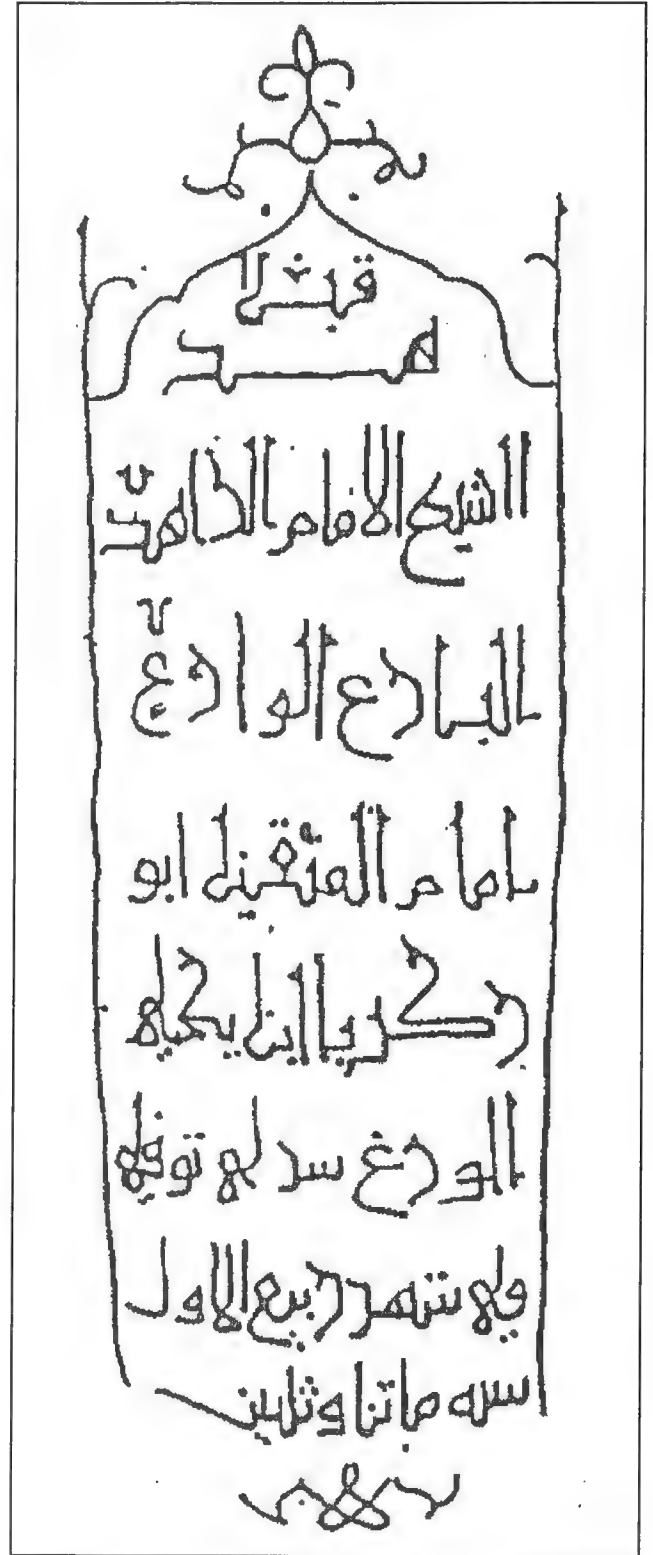 قبر
هذا
الشيخ الامام الزاهد
البارع الوارع
امام المتقين ابو
زكريا ابن يحيى
الورغ سدى توفي
في شهر ربيع الاول
سنه ماتنا وثلثين